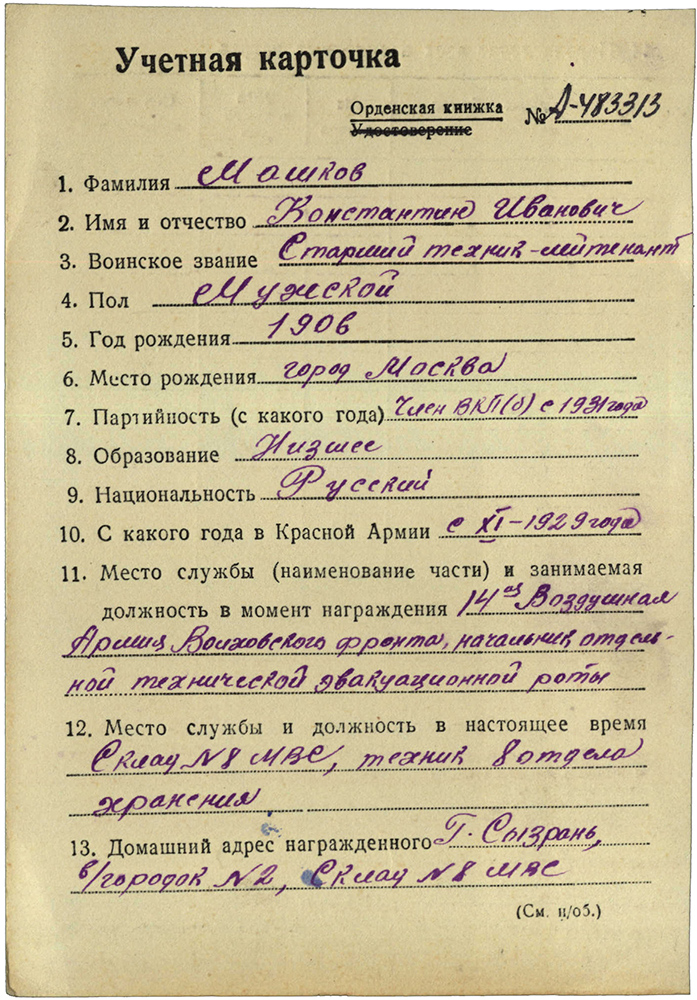 Учетная карточка
Орденская книжка
Удостоверение
№ А-483313
1. Фамилия Машков
2. Имя и отчество Константин Иванович
3. Воинское звание Старший техник-лейтенант
4. Пол Мужской
5. Год рождения 1906
6. Место рождения город Москва
7. Партийность (с какого года) Член ВКП(б) с 1931 года
8. Образование Низшее
9. Национальность Русский
10. С какого года в Красной Армии с XI-1929 года
11. Место службы (наименование части) и занимаемая
должность в момент награждения 14ая Воздушная
Армия Волховского фронта, начальник отдель-
ной технической эвакуационной роты
12. Место службы и должность в настоящее время
Склад N8 МВС, техник 8 отдела
хранения
13. Домашний адрес награжденного Г. Сызрань,
в/городок N2, Склад N8 МВС
(См. н/об.)